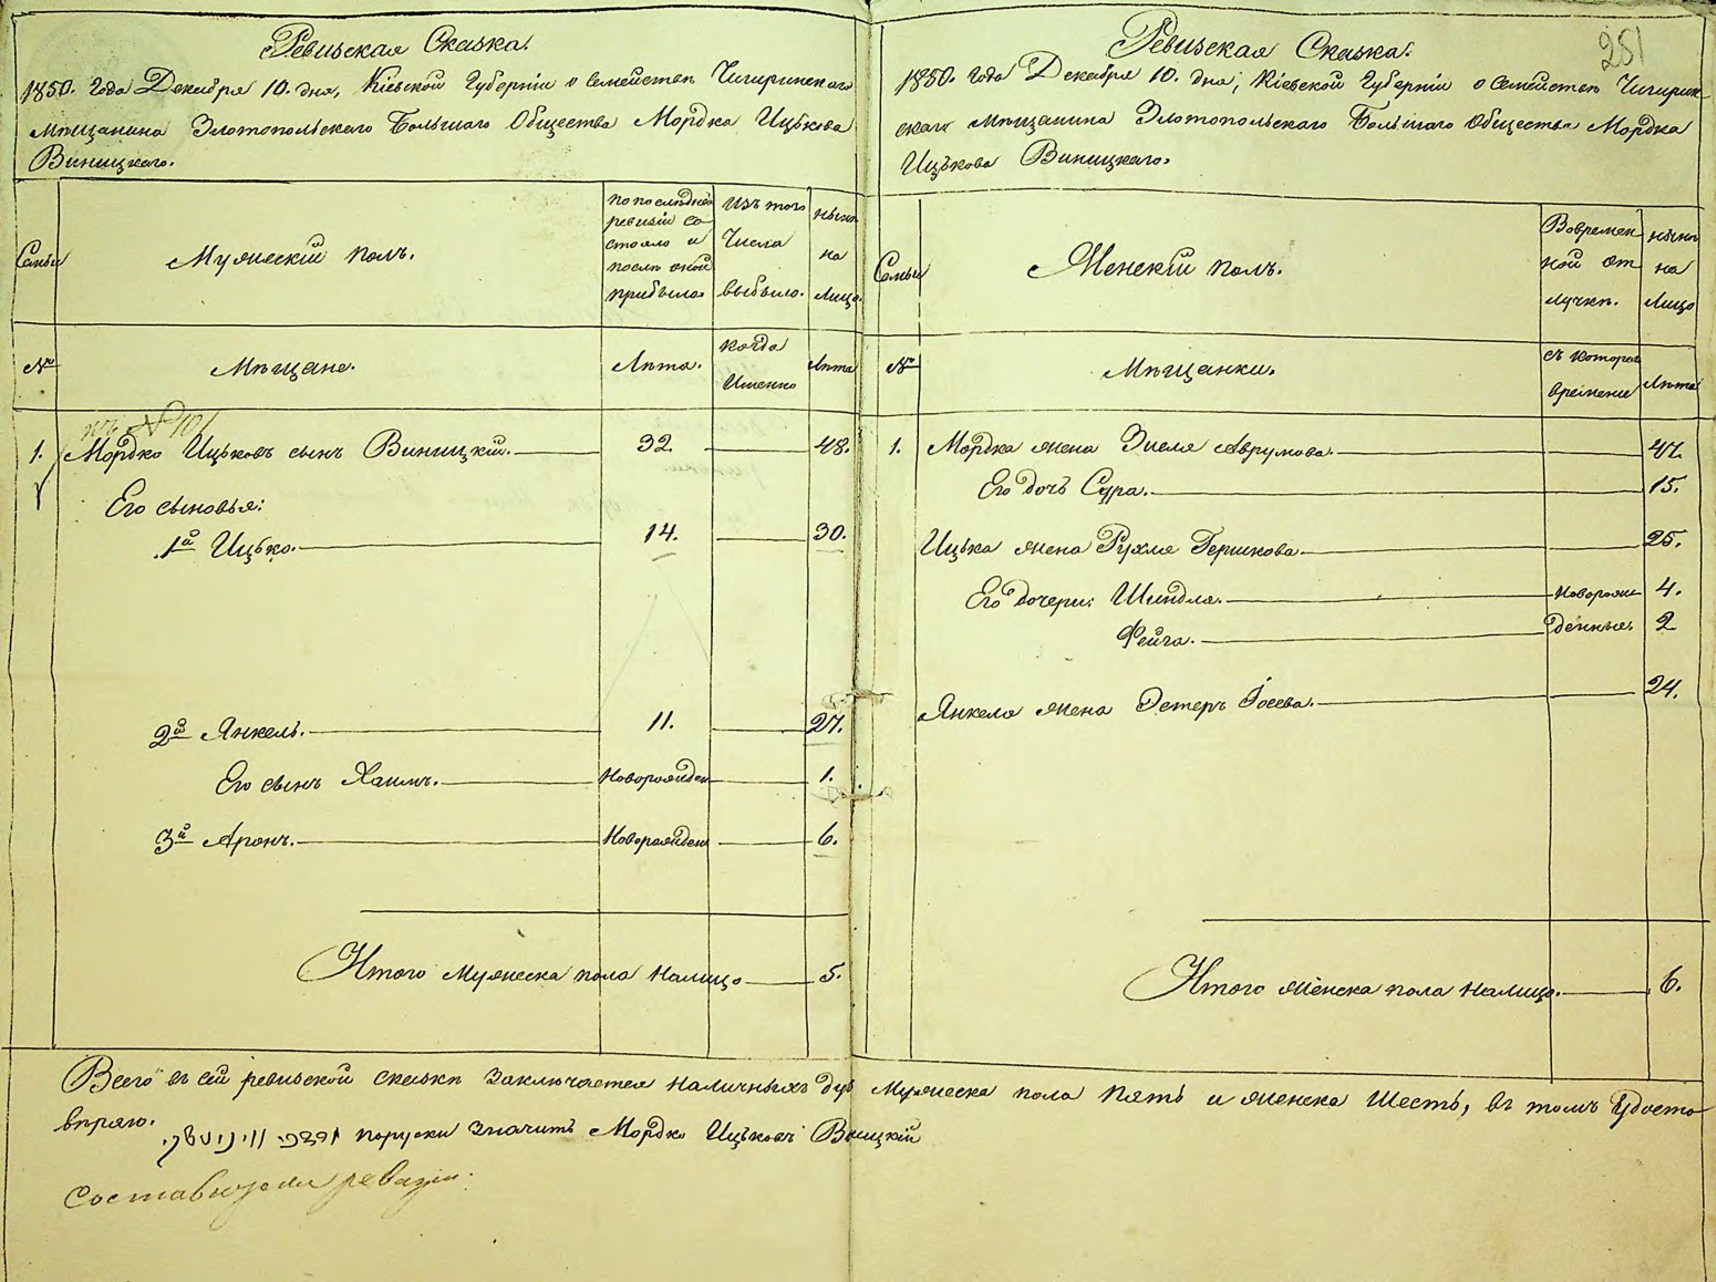 Ревизская Сказка.
1850. года Декабря 10. дня, Кіевской Губерніи о семействѣ Чигиринскаго
мѣщанина Златопольскаго Большаго Общества Мордка Ицькова
Виницкаго.
Семьи
Мужескій полъ.
по послѣдней
ревизіи со-
стояло и
послѣ оной
прибыло
Изъ того
Числа
выбыло.
нынѣ
на
Лицо.
№
Мѣщане.
Лѣта.
когда
Именно
Лѣта
1. Мордко Ицьковъ сынъ Виницкій. 32. 48.
Его сыновья:
1й Ицько. 14. 30.
2й Янкель. 11. 27.
Его сынъ Хаимъ. Новорожден 1.
3й Аронъ. Новорожден 6.
Итого Мужеска пола налицо 5.
Ревизская Сказка.
251
1850. года Декабря 10. дня, Кіевской Губерніи о семействѣ Чигирин-
скаго мѣщанина Златопольскаго Большаго общества Мордка
Ицькова Виницкаго.
Семьи
Женскій полъ.
Вовремен
ной от
лучкѣ.
нынѣ
на
Лицо
№
Мѣщанки.
съ котораго
времени
Лѣта
1. Мордка жена Зисля Аврумова. 47.
Его дочь Сура. 15.
Ицька жена Рухля Гершкова 25.
Его дочери: Шиндля. Новорож 4.
Фейга. денные. 2
Янкеля жена Эстеръ Іосева. 24.
Итого женска пола налицо. 6.
Всего въ сей ревизской сказкѣ заключается наличныхъ душ Мужеска пола пять и женска шесть, въ томъ Удосто
вѣряю.
מרדכי וויניטסקי порусски значитъ Мордко Ицьковъ Виницкій